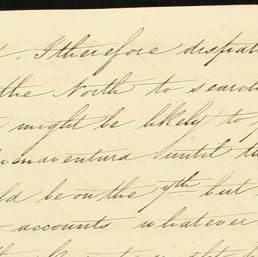 . I therefore dispat
the North to search
might be likely to
enaventura until th
ld be on the 7th but
accounts whatever